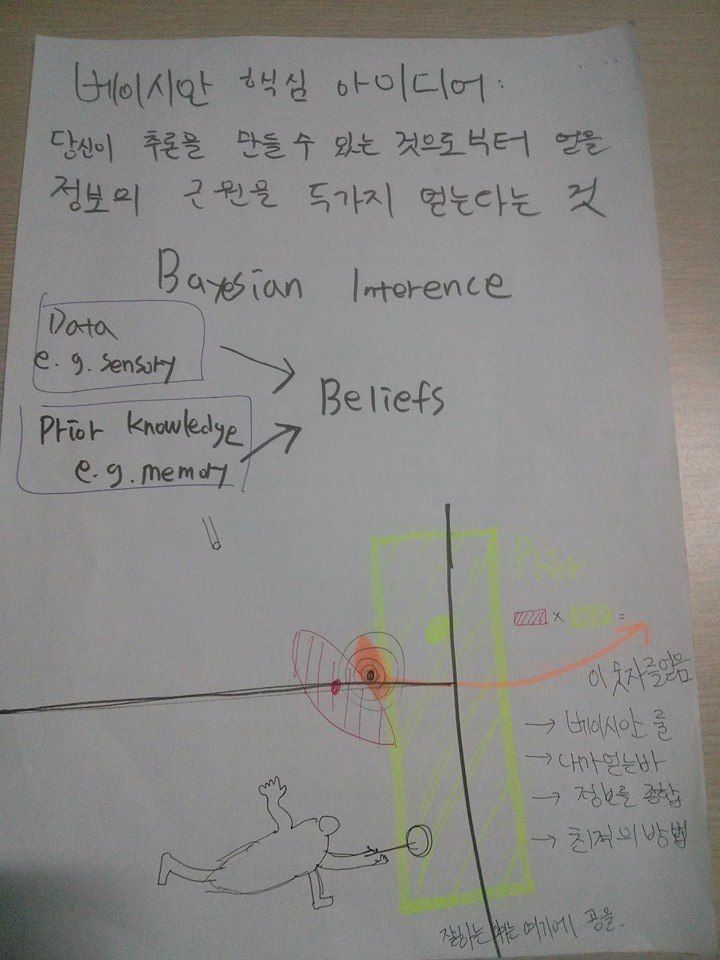 베이시안 핵심 아이디어:
당신이 추론을 만들 수 있는 것으로부터 얻을
정보의 근원을 두가지 얻는다는 것
Bayesian Inference
Data
e.g. sensory
Prior knowledge
e.g. memory
Beliefs
x =
이 숫자를 얻음
→ 베이시안 룰
→ 내가 얻는바
→ 정보를 종합
→ 최적의 방법
잘하는 여기에 공을.